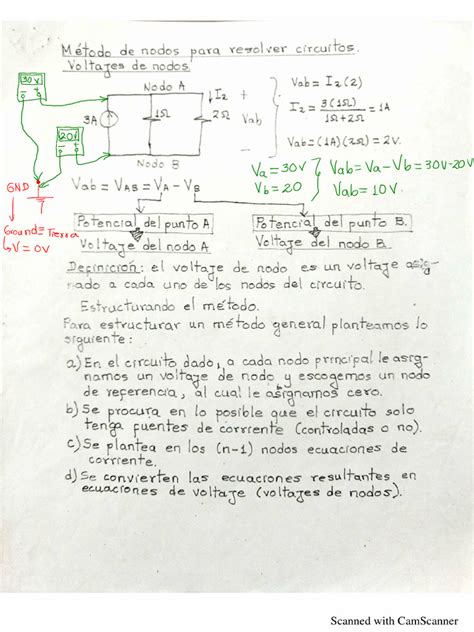 Método de nodos para resolver circuitos.
Voltajes de nodos
30V
- +
20V
- +
Nodo A
3A
1Ω
I2
2Ω
+
Vab
-
Nodo B
Vab = I2(2)
I2 = 3(1Ω) / 1Ω+2Ω = 1A
Vab = (1A)(2Ω) = 2V.
Va = 30V
Vb = 20
Vab = Va - Vb = 30V-20V
Vab = 10V.
GND
Ground = Tierra
V = 0V
Vab = VAB = VA - VB
Potencial del punto A
Voltaje del nodo A
Potencial del punto B.
Voltaje del nodo B.
Definición: el voltaje de nodo es un voltaje asig-
nado a cada uno de los nodos del circuito.
Estructurando el método.
Para estructurar un método general planteamos lo
siguiente:
a) En el circuito dado, a cada nodo principal le asig-
namos un voltaje de nodo y escogemos un nodo
de referencia, al cual le asignamos cero.
b) Se procura en lo posible que el circuito solo
tenga fuentes de corriente (controladas o no).
c) Se plantea en los (n-1) nodos ecuaciones de
corriente.
d) Se convierten las ecuaciones resultantes en
ecuaciones de voltaje (voltajes de nodos).
Scanned with CamScanner